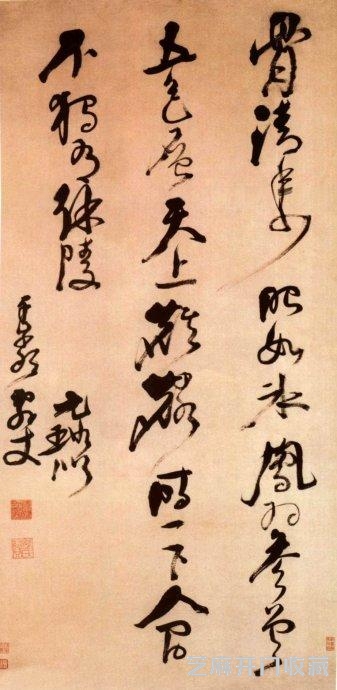 骨清年少眼如冰鳳羽參差
五色層天上麒麟時一下人間
不獨有徐陵
元璐似
丈
芝麻开门收藏